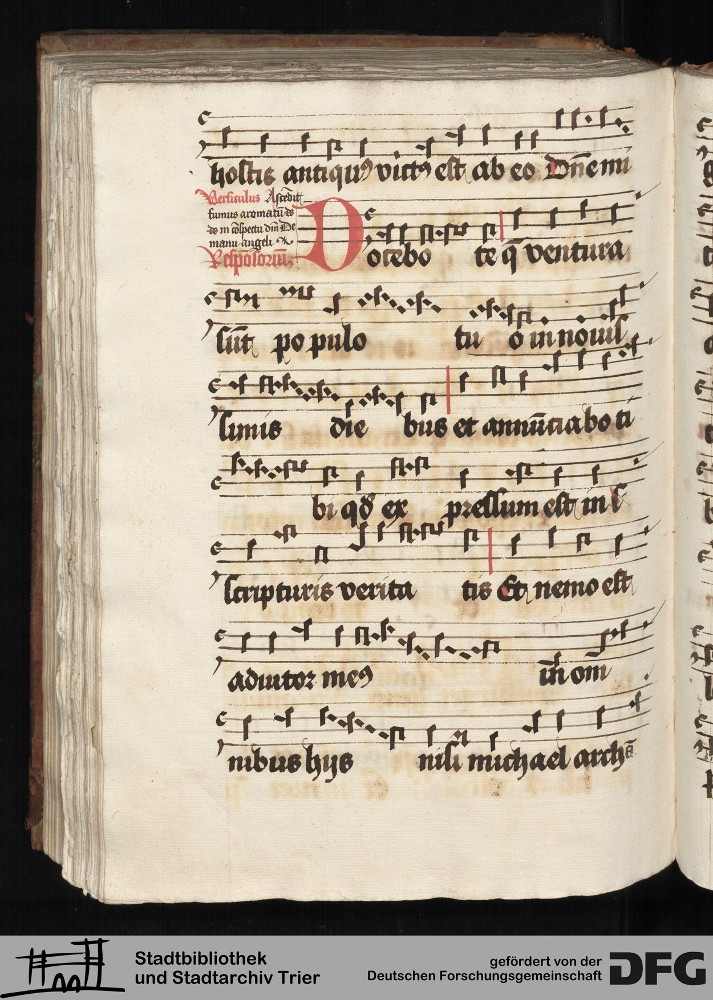 hostis antiquꝰ victꝰ est ab eo Dn̄e mi
Versiculus Ascendit
fumus aromatū de
manu angeli
Respōsoriū
Docebo te q̄ ventura
sūt populo tuo in novis
simis diebus et annūciabo ti
bi qd̄ expressum est in s
scripturis veritatis Et nemo est
adiutor meꝰ in om̄
nibus hys nisi michael archā
Stadtbibliothek
und Stadtarchiv Trier
gefördert von der
Deutschen Forschungsgemeinschaft
DFG